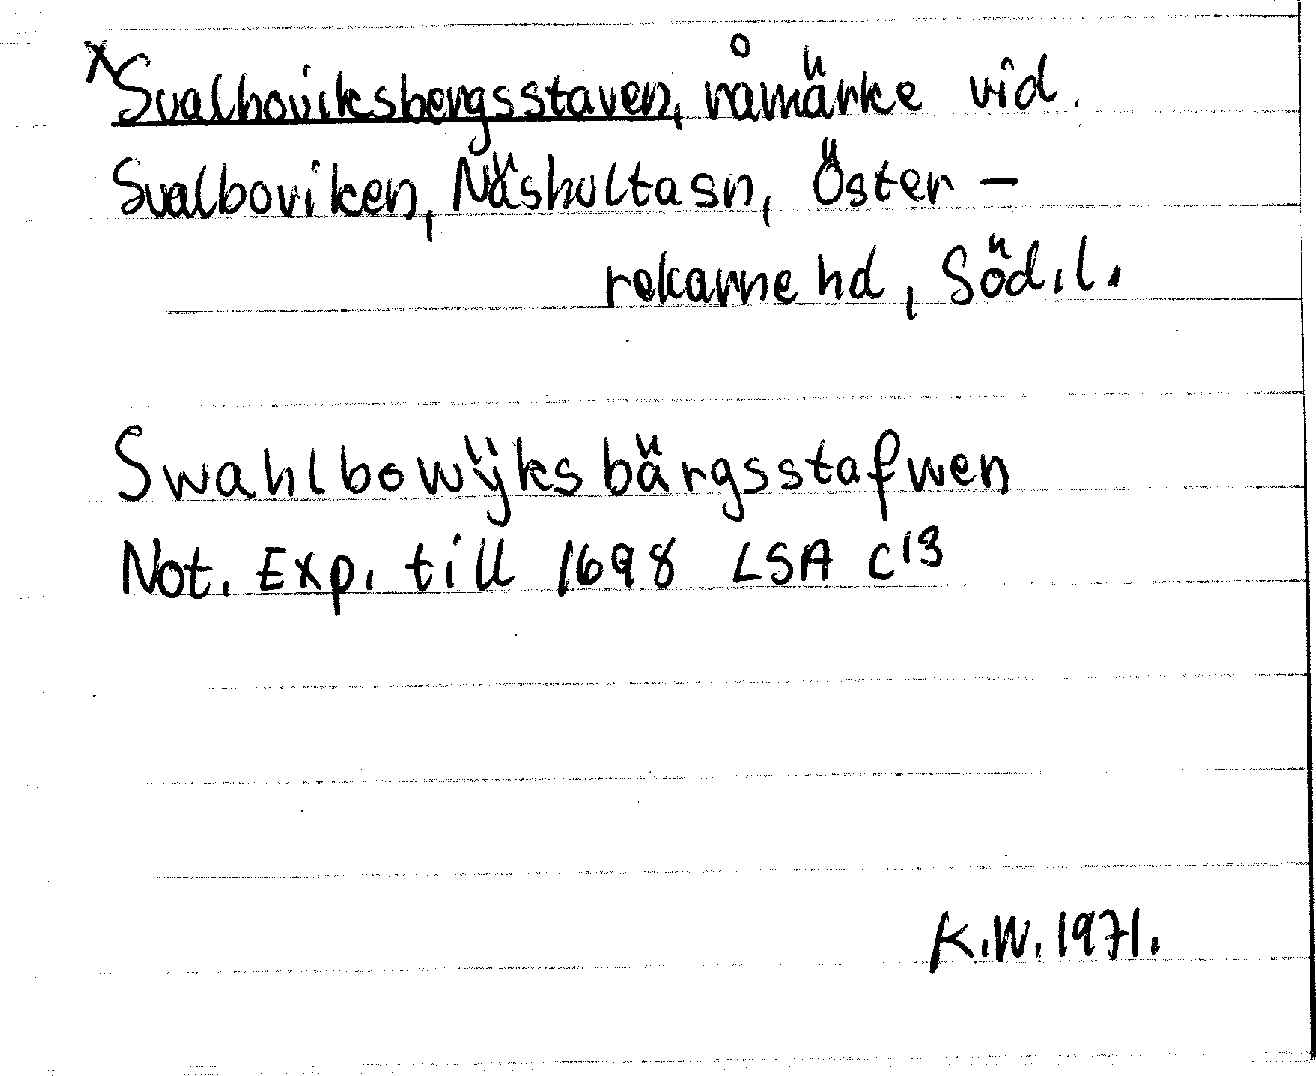 xSvalboviksbergsstaven, råmärke vid
Svalboviken, Näshulta sn, Öster-
rekarne hd, Söd.l.
Swahlbowÿksbärgsstafwen
Not. Exp. till 1698 LSA C13
K.W. 1971.